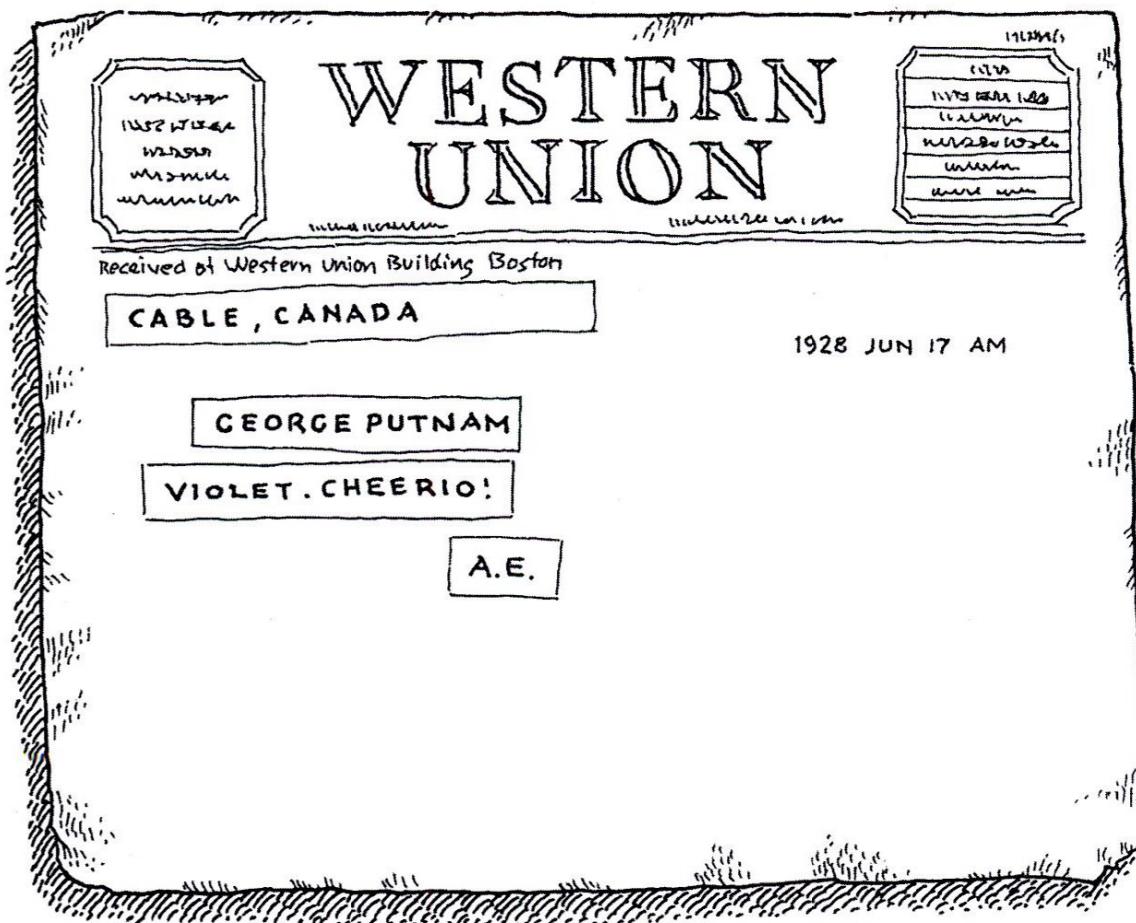 WESTERN
UNION
Received at Western Union Building Boston
CABLE, CANADA
1928 JUN 17 AM
GEORGE PUTNAM
VIOLET. CHEERIO!
A.E.